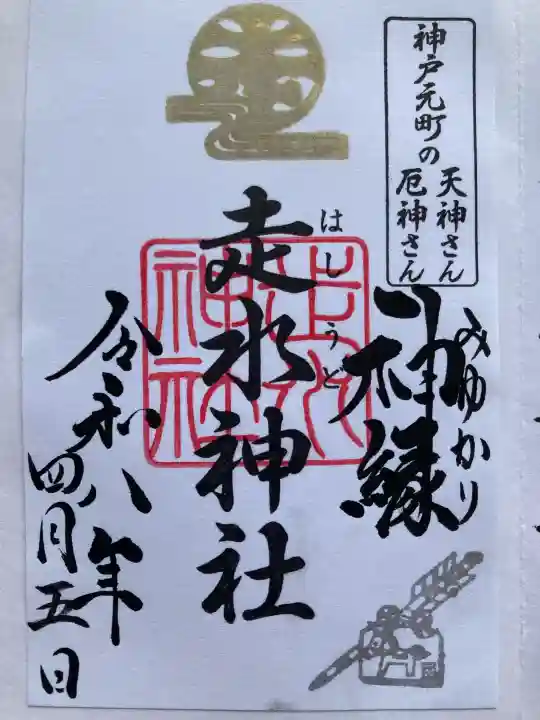 神戸元町の
天神さん
厄神さん
神縁
みゆかり
走水神社
はしうど
走水神社
令和八年
四月五日